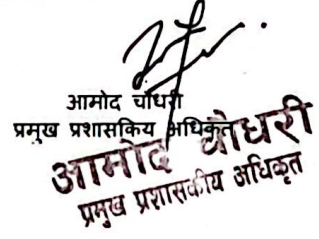 आमोद चौधरी
प्रमुख प्रशासकिय अधिकृत
आमोद चौधरी
प्रमुख प्रशासकीय अधिकृत